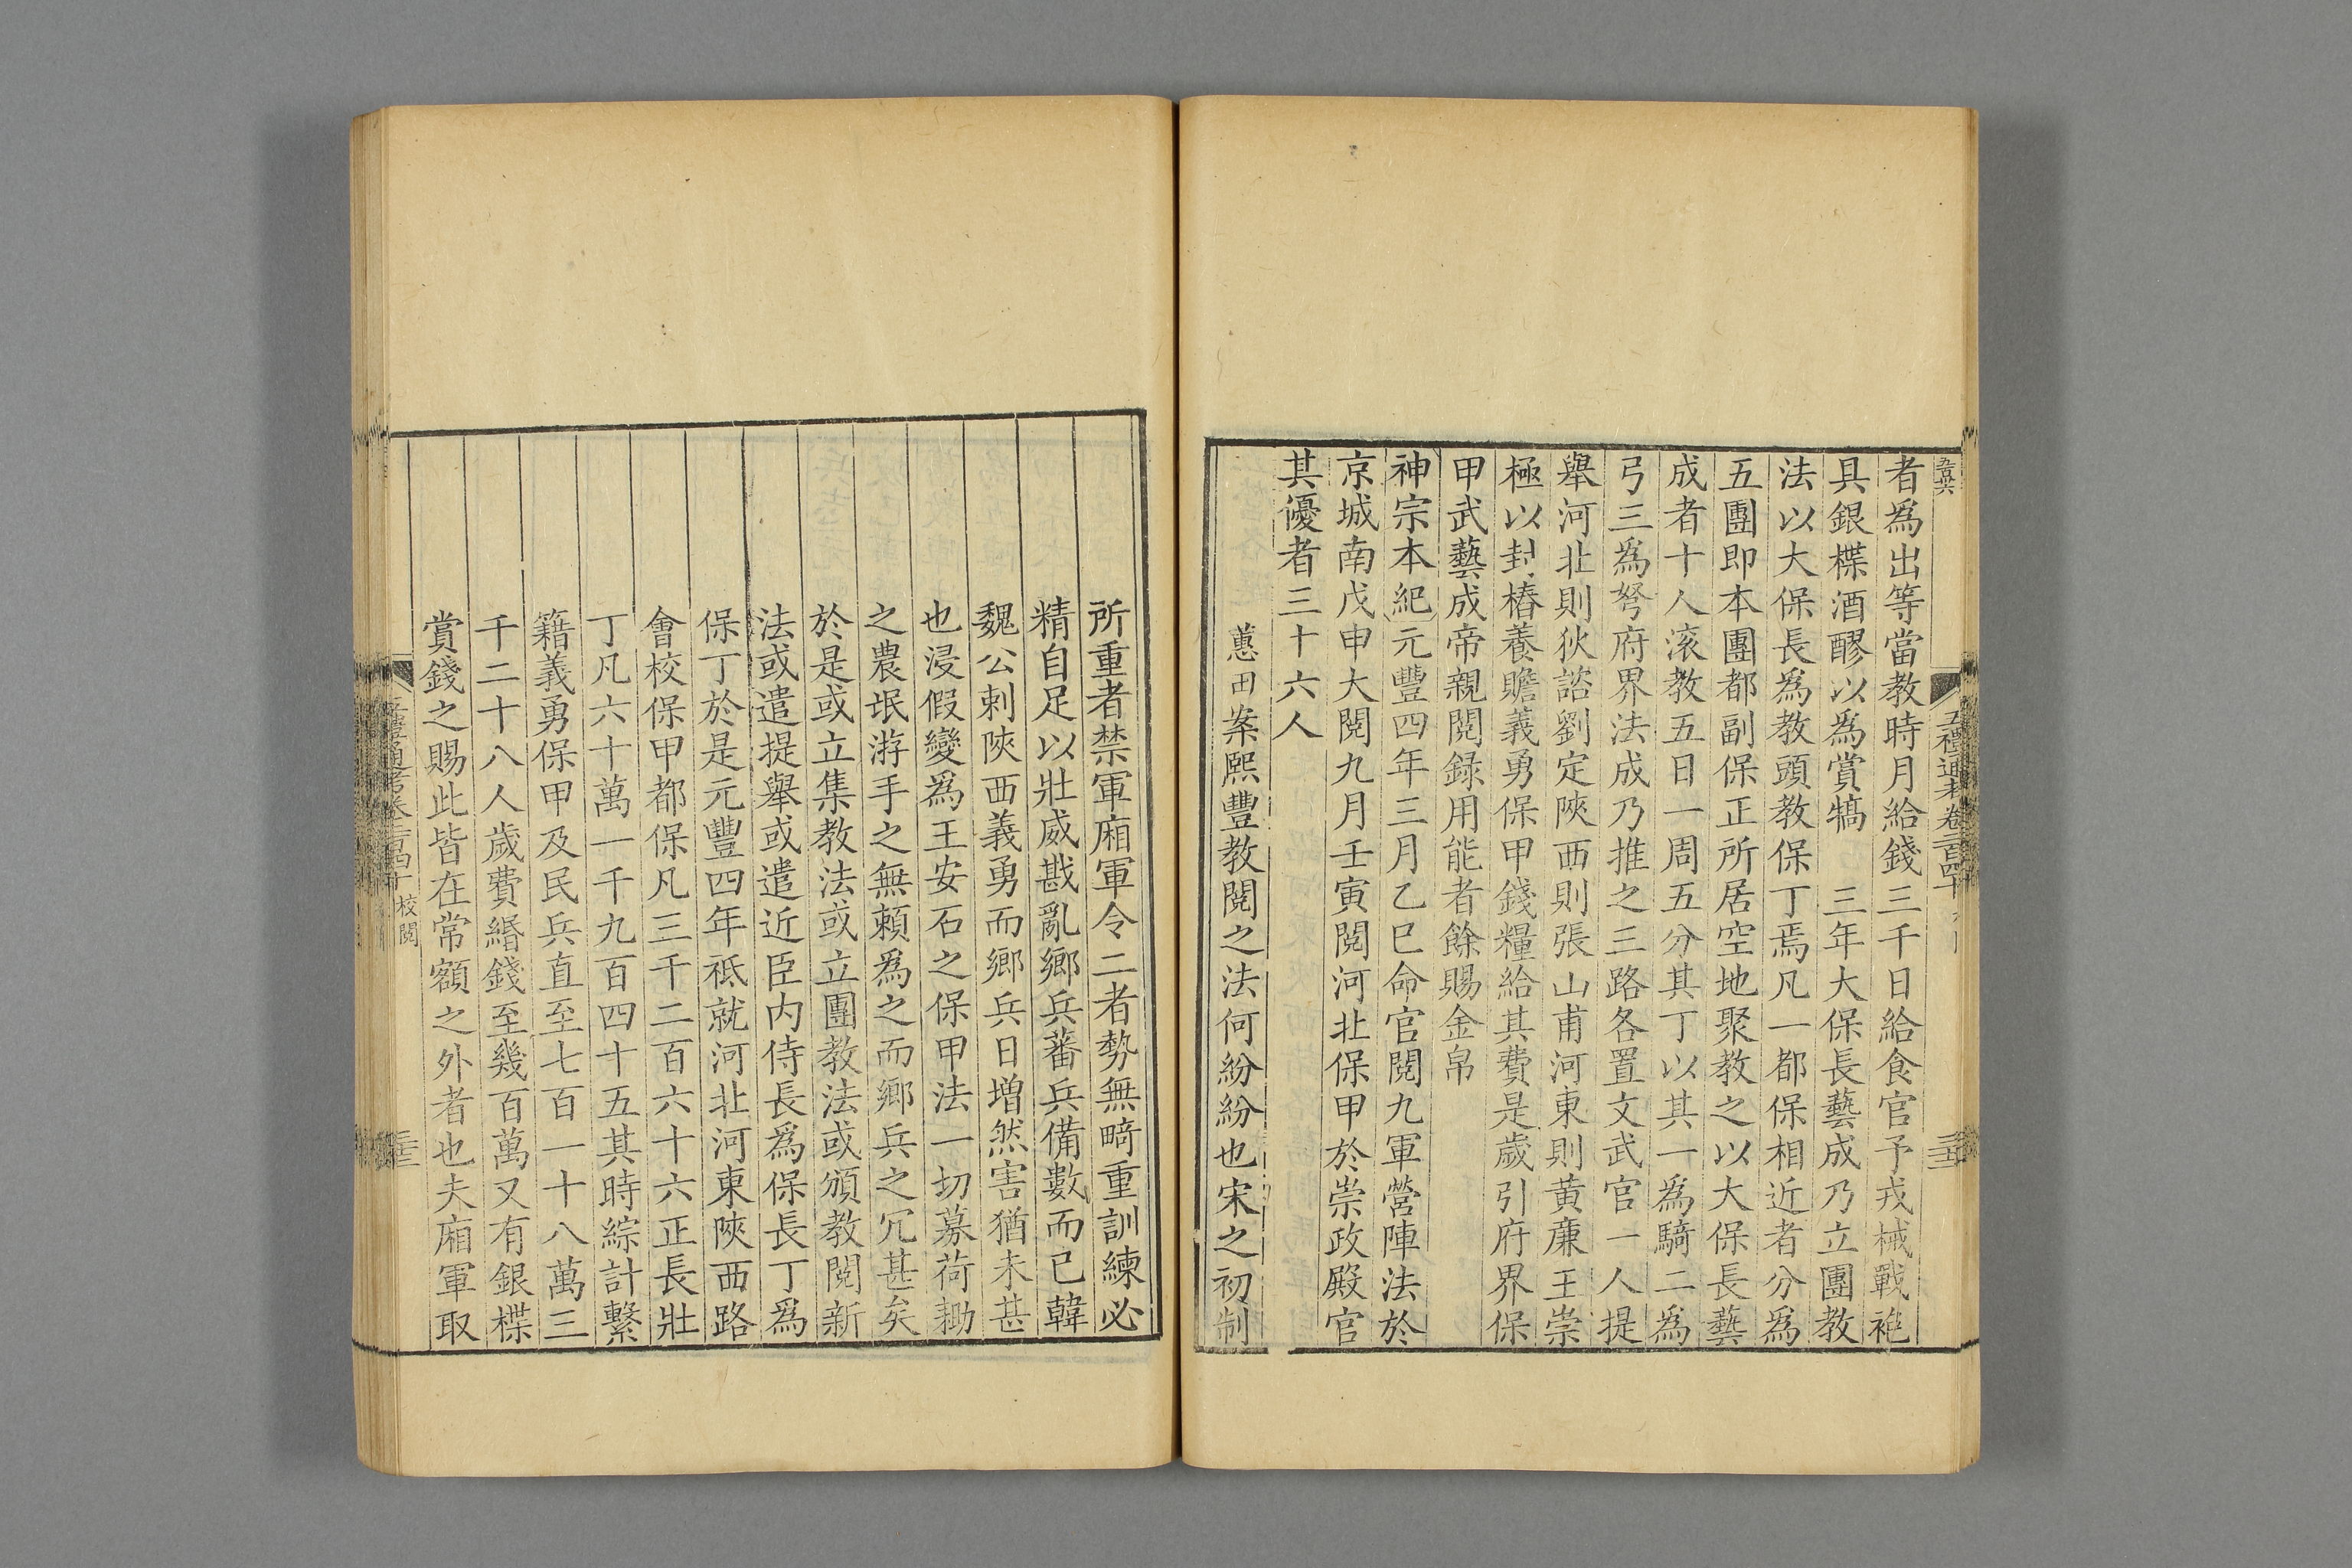 五禮通考卷二百四十
者爲出等當教時月給錢三千日給食官予戎械戰袍
具銀楪酒醪以爲賞犒　三年大保長藝成乃立團教
法以大保長爲教頭教保丁焉凡一都保相近者分爲
五團即本團都副保正所居空地聚教之以大保長藝
成者十人滚教五日一周五分其丁以其一爲騎二爲
弓三爲弩府界法成乃推之三路各置文武官一人提
舉河北則狄諮劉定陜西則張山甫河東則黄亷王崇
極以封樁養贍義勇保甲錢糧給其費是歲引府界保
甲武藝成帝親閲録用能者餘賜金帛
神宗本紀元豐四年三月乙巳命官閲九軍營陣法於
京城南戊申大閲九月壬寅閲河北保甲於崇政殿官
其優者三十六人
蕙田案熙豐教閲之法何紛紛也宋之初制
所重者禁軍廂軍令二者勢無畸重訓練必
精自足以壯威戡亂鄉兵蕃兵備數而已韓
魏公刺陜西義勇而鄉兵日增然害猶未甚
也浸假變爲王安石之保甲法一切募荷耡
之農氓游手之無賴爲之而鄉兵之冗甚矣
於是或立集教法或立團教法或頒教閲新
法或遣提舉或遣近臣内侍長爲保長丁爲
保丁於是元豐四年祗就河北河東陜西路
會校保甲都保凡三千二百六十六正長壯
丁凡六十萬一千九百四十五其時綜計繫
籍義勇保甲及民兵直至七百一十八萬三
千二十八人歲費緡錢至幾百萬又有銀楪
賞錢之賜此皆在常額之外者也夫廂軍取
五禮通考卷二百四十 校閲